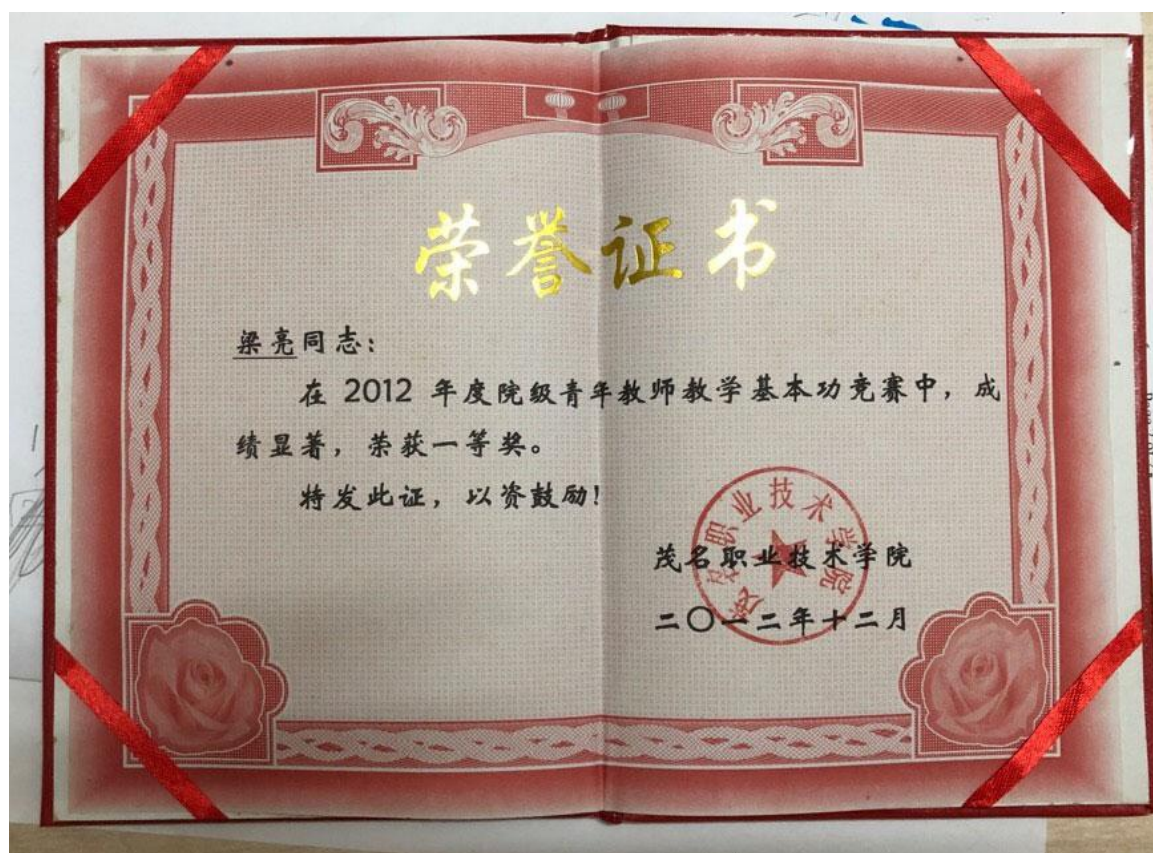 荣誉证书
梁亮同志：
在 2012 年度院级青年教师教学基本功竞赛中，成
绩显著，荣获一等奖。
特发此证，以资鼓励！
茂名职业技术学院
茂名职业技术学院
二〇一二年十二月